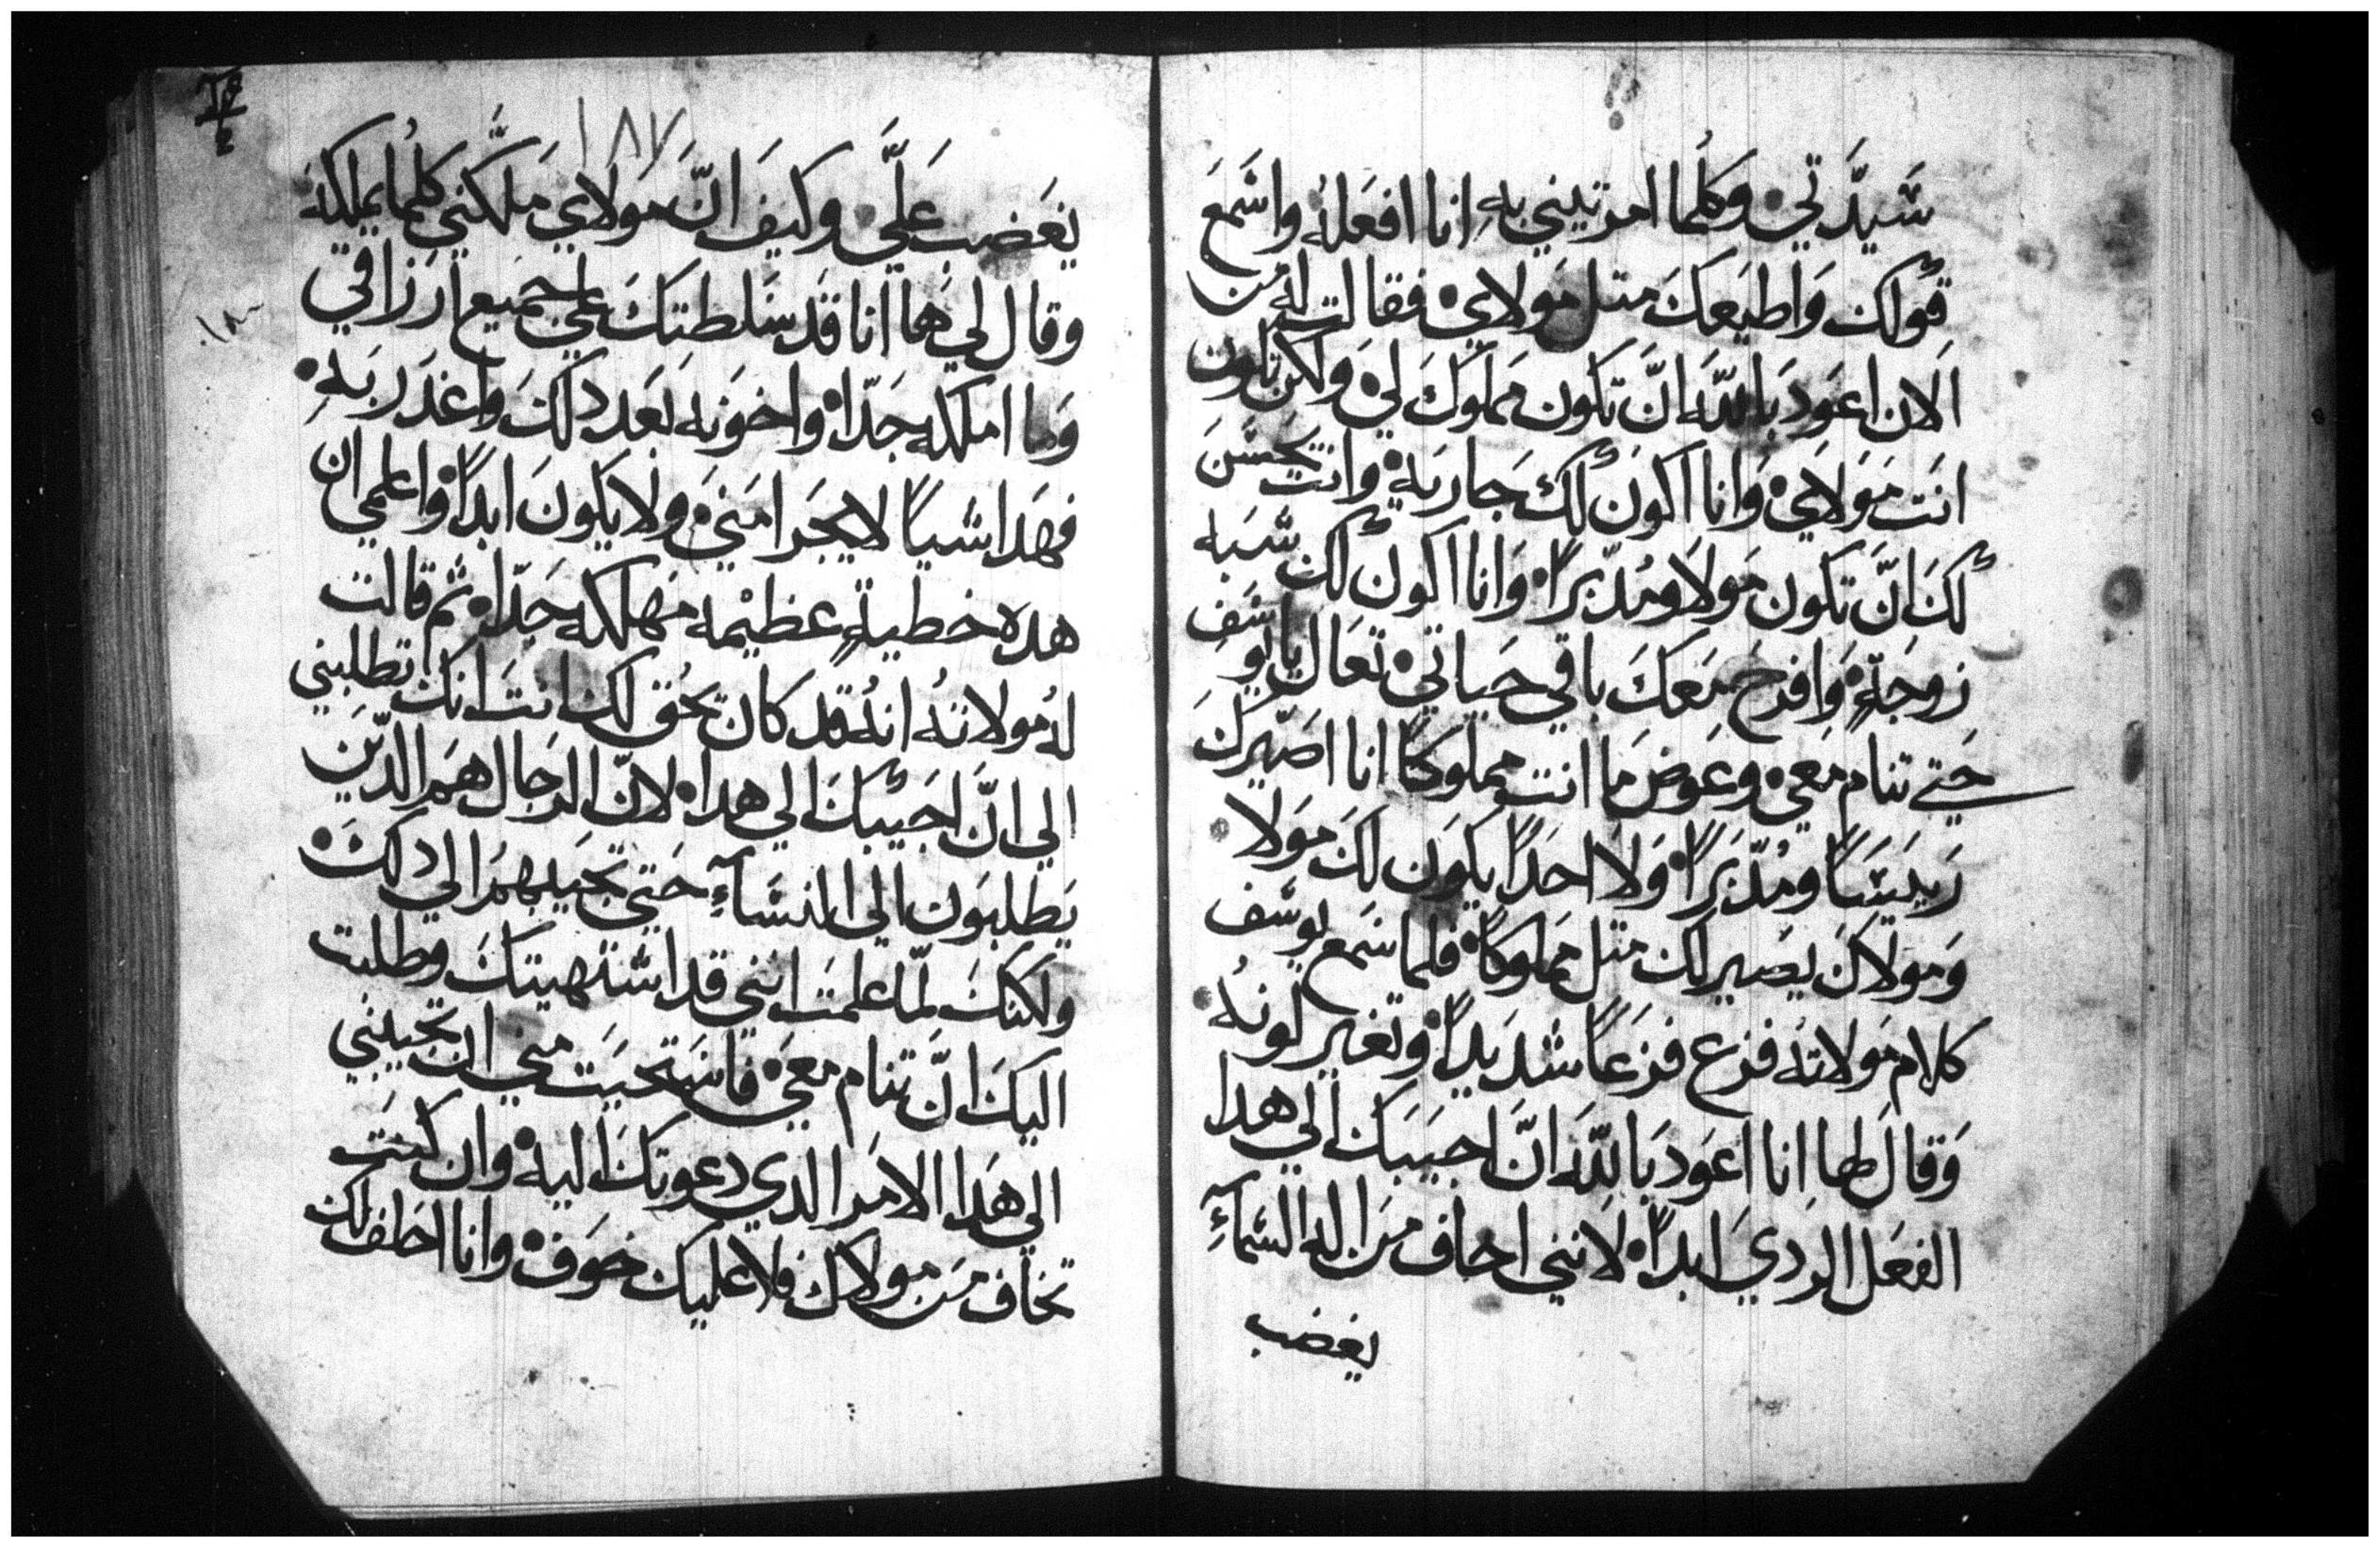 سَيدَّتي • وكلما امرتيني بهِ انا افعَلهُ واسَمعَ
قولك وَاطيَعكَ متل مَولاي • فقالت له مُن
الان اعوَد بَاللهَ انَّ تكون مَملوكَ لي • ولكن تكون
انَت مَولَاي • وَانا اكونَ لك جَاريَة • وانت تحَسَنَ
لكَ انَّ تكون مَولا ومُدّبرًا • وَانا اكونَ لك شبَه
زوجَةٍ • وَافرحَ مَعكَ باقي حَياتي • تعَال يا يوسَف
حَتي تنام مَعي • وعوَض مَا انت مملوكًا انا اصَيّركَ
رَييسًَا ومُدّبَرًا • وَلا احَدًا يكوَن لكَ مَولا
وَمَولاكَ يصَير لك متل مَملوكًا • فلما سَمع يوسَف
كلام مَولاته فزع فزعًَا شديَدًا • وتغير لونهُ •
وَقالَ لها انا اعوَد بَاللهَ انَّ اجيَبَك الي هدا
الفعَل الردي ابدًا • لانني اخاف مَن اله السَمآءِ
يغضب
١٨٧
يغَضب عَليَّ • وكيَف انَّ مَولاي مَلكّني كلما يملكهُ
وقال لي ها انا قَد سَلطتكَ علي جَميع ارزَاقي
وَما املكه جَدّا • واخوَنه بَعَد دلكَ واغدَر بَهِ •
فهَدا شياً لا يجَرا مَني • ولا يكون ابدًا • واعلمي ان
هدهِ خطيةٍ عظيْمه مَهلكه جَدّا • ثم قالت
لهُ مولاتهُ انهُ قد كان يحُق لك انتَ انك تطلبني
الي انَّ اجَيبكَ الي هدا • لانّ الرجَال هَم الدّين
يَطلبوَن الي النسَآءِ حَتي تجَيبهمَ الي دلكَ •
ولكنكَ لمّا علمَت انني قد اشتهيتكَ وطلبت
اليكَ انَّ تنام مَعي • فاسَتحيَت مَني ان تجَيبني
الي هَدا الامَر الدي دعوتكَ اليه • وان كنَتَ
تخاف مَن مَولاك فلا عليك خوَف • وانا احَلف لك